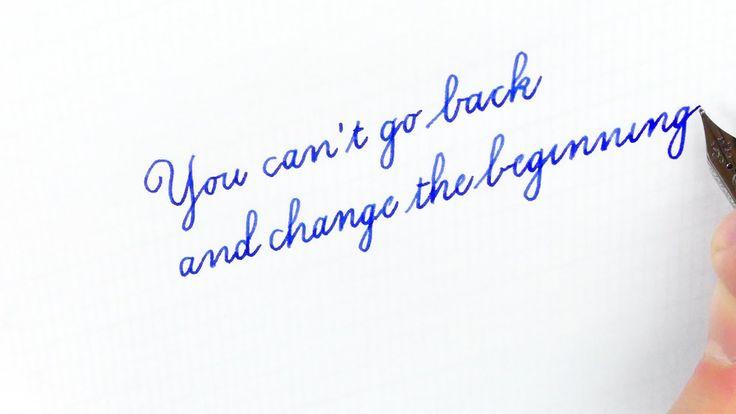 You can't go back
and change the beginning